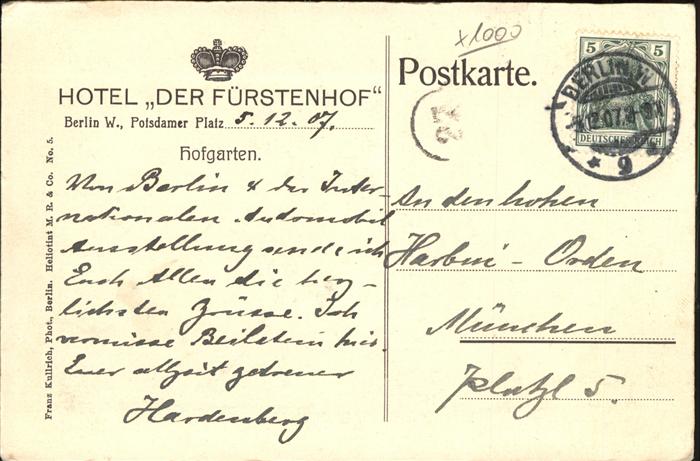 x1000
HOTEL „DER FÜRSTENHOF“
Berlin W., Potsdamer Platz 5. 12. 07.
Hofgarten.
Von Berlin & der Inter-
nationalen Automobil
Ausstellung sende ich
Euch Allen die herz-
lichsten Grüsse. Ich
vermisse Beilstein hier.
Euer allzeit getreuer
Hardenberg
Franz Kullrich, Phot., Berlin. Heliotint M. R. & Co. No. 5.
Postkarte.
5 5
DEUTSCHES REICH
BERLIN W.
9
An den hohen
Harbni - Orden
München
Platzl 5.